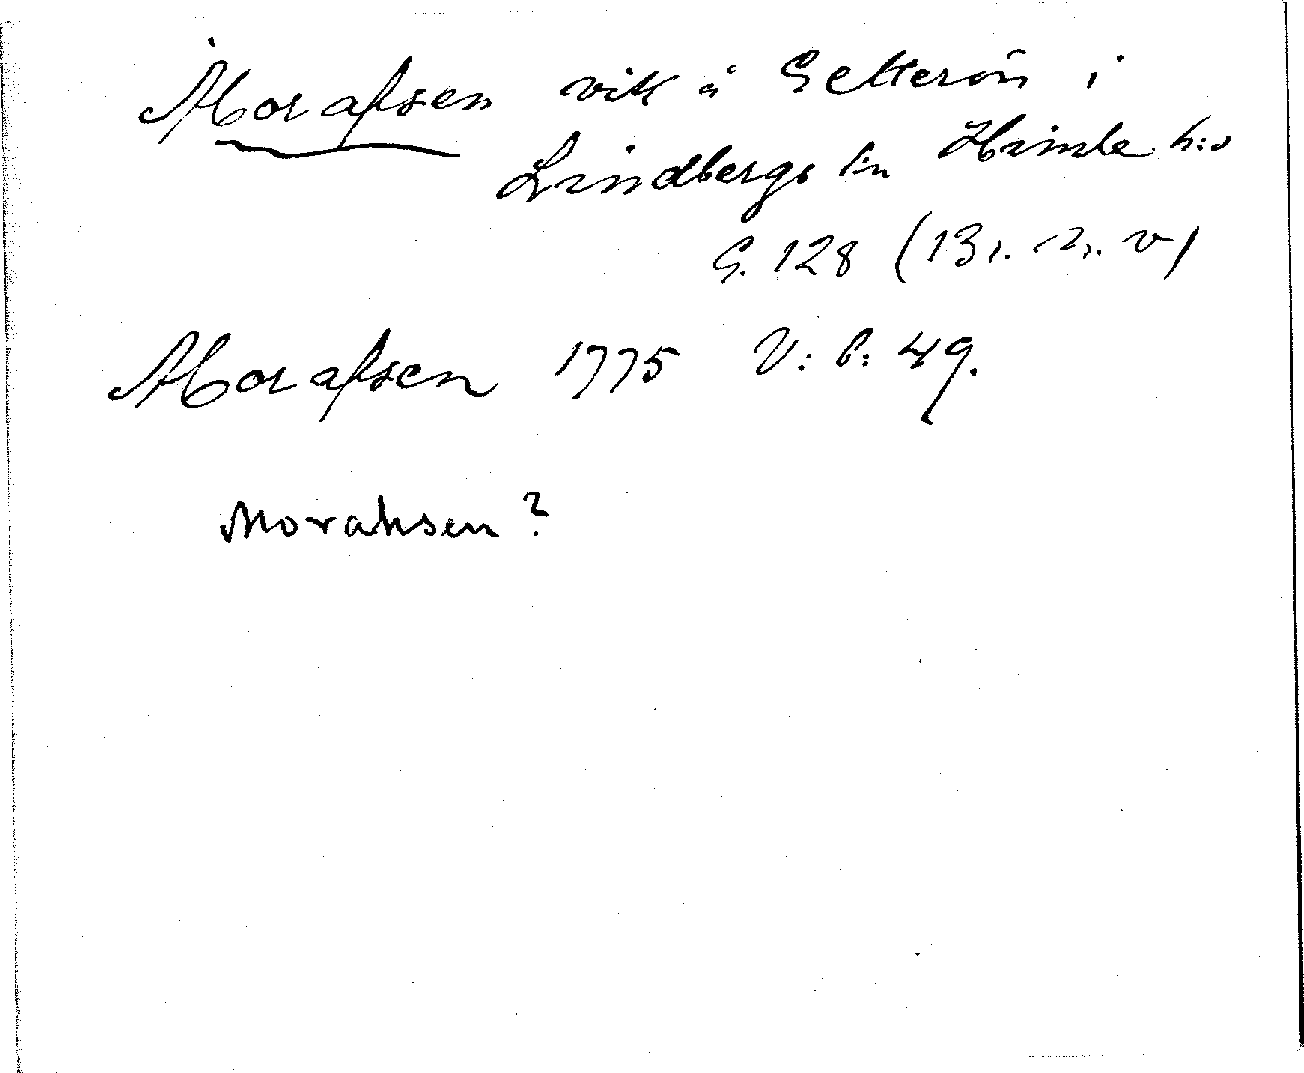 Morafsen vik å Getterön i
Lindbergs sn Himle h:d
G. 128 (13r. 2r. v)
Morafsen 1775 V: b: 49.
Moraksen?